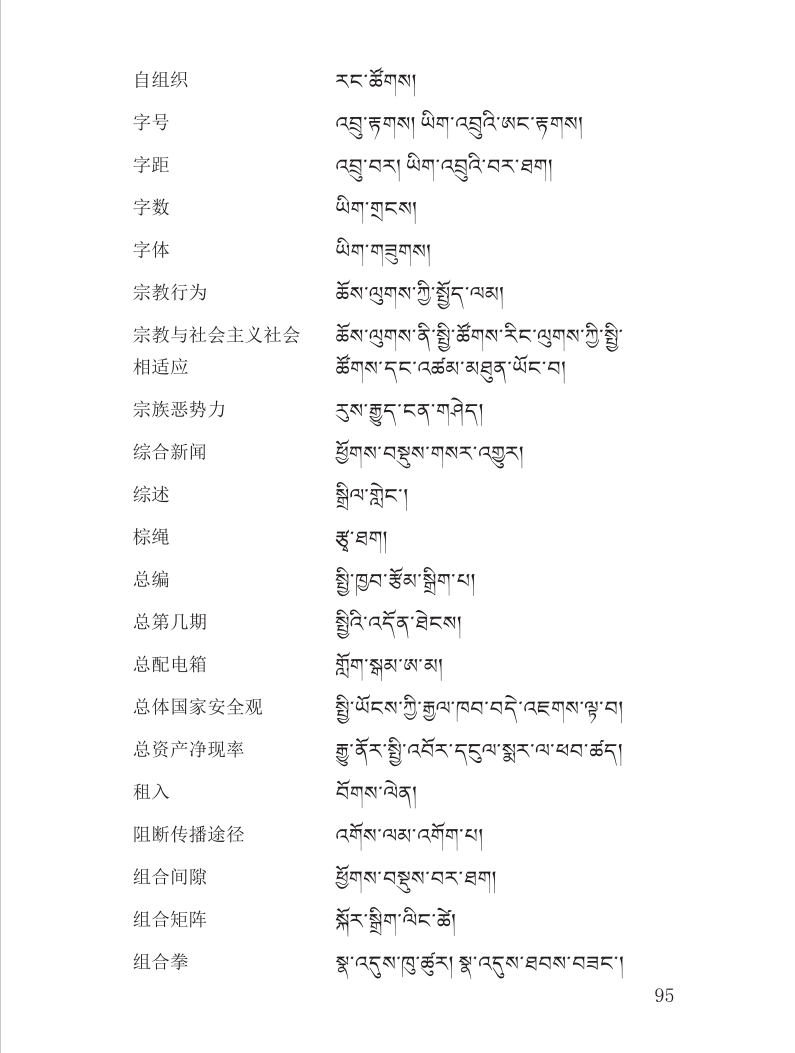 自组织 རང་ཚོགས།
字号 འབྲུ་རྟགས། ཡིག་འབྲུའི་ཨང་རྟགས།
字距 འབྲུ་བར། ཡིག་འབྲུའི་བར་ཐག།
字数 ཡིག་གྲངས།
字体 ཡིག་གཟུགས།
宗教行为 ཆོས་ལུགས་ཀྱི་སྤྱོད་ལམ།
宗教与社会主义社会 ཆོས་ལུགས་ནི་སྤྱི་ཚོགས་རིང་ལུགས་ཀྱི་སྤྱི་
相适应 ཚོགས་དང་འཚམ་མཐུན་ཡོང་བ།
宗族恶势力 རུས་རྒྱུད་ངན་གཤེད།
综合新闻 ཕྱོགས་བསྡུས་གསར་འགྱུར།
综述 སྒྲིལ་གླེང་།
棕绳 རྩྭ་ཐག།
总编 སྤྱི་ཁྱབ་རྩོམ་སྒྲིག་པ།
总第几期 སྤྱིའི་འདོན་ཐེངས།
总配电箱 གློག་སྒམ་ཨ་མ།
总体国家安全观 སྤྱི་ཡོངས་ཀྱི་རྒྱལ་ཁབ་བདེ་འཇགས་ལྟ་བ།
总资产净现率 རྒྱུ་ནོར་སྤྱི་འབོར་དངུལ་སྨར་ལ་ཕབ་ཚད།
租入 བོགས་ལེན།
阻断传播途径 འགོས་ལམ་འགོག་པ།
组合间隙 ཕྱོགས་བསྡུས་བར་ཐག།
组合矩阵 སྐོར་སྒྲིག་ལིང་ཚེ།
组合拳 སྣ་འདུས་ཁུ་ཚུར། སྣ་འདུས་ཐབས་བཟང་།
95